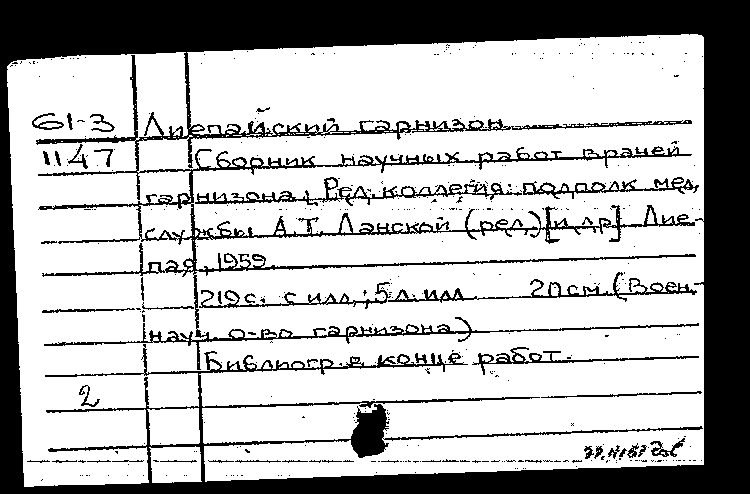 61-3 Лиепайский гарнизон
1147 Сборник научных работ врачей
гарнизона; Ред. коллегия: подполк мед.
службы А.Т. Ланской (ред.) [и др] Лие-
пая, 1959.
219 с. с илл.; 5 л. илл 20 см. (Воен.-
науч. о-во гарнизона)
Библиогр. в конце работ.
2